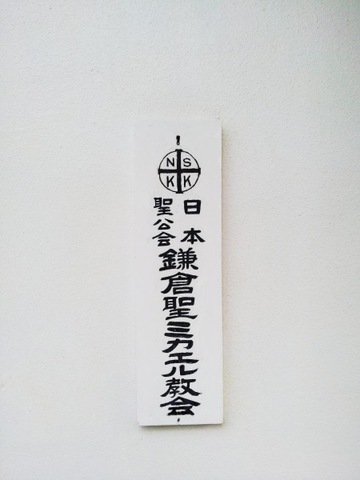 NS
KK
日本
聖公会
鎌倉聖ミカエル教会